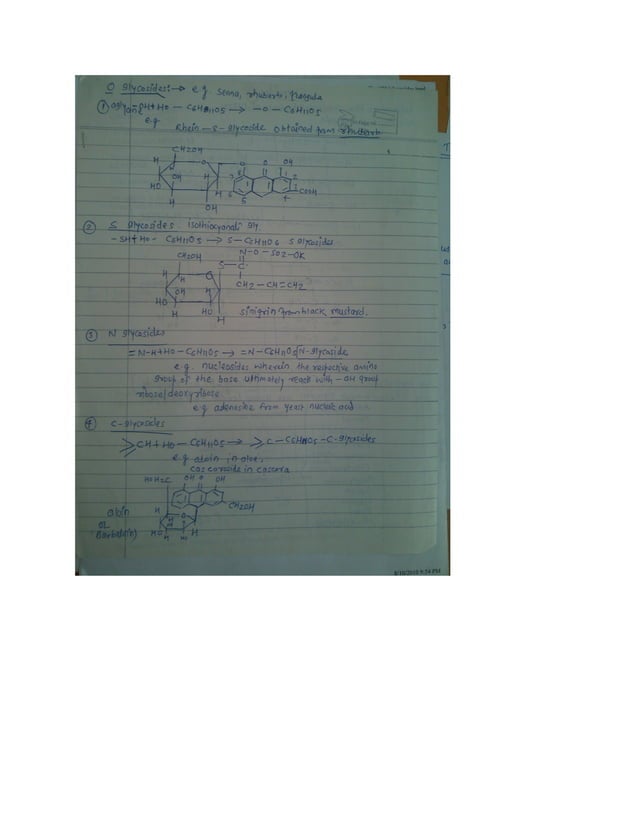 O glycosides:→ e.g. Senna, rhubarb, frangula
① agly -OH + HO — C6H11O5 → —O— C6H11O5
e.g
Rhein — 8 — glycoside obtained from rhubarb
CH2OH
O O O OH
H H H
OH H
HO H COOH
H OH
② S glycosides isothiocyanate gly.
- SH + HO - C6H11O5 → S — C6H11O5 S glycosides
CH2OH N-O — SO2-OK
S — C
H H O
OH H CH2 — CH = CH2
HO HO
H H sinigrin from black mustard.
③ N glycosides
= N-H + HO — C6H11O5 → = N — C6H11O5 N-glycoside
e.g. nucleosides wherein the respective amino
group of the base ultimately react with -OH group
ribose/deoxyribose
e.g adenosine from yeast nucleic acid
④ C-glycosides
CH + HO — C6H11O5 → C — C6H11O5 — C-glycosides
e.g aloin in aloe.
cascaroside in cascara
HOH2C OH O OH
CH2OH
Aloin H O
or H
Barbaloin) HO H HO H
8/10/2010 9:54 PM